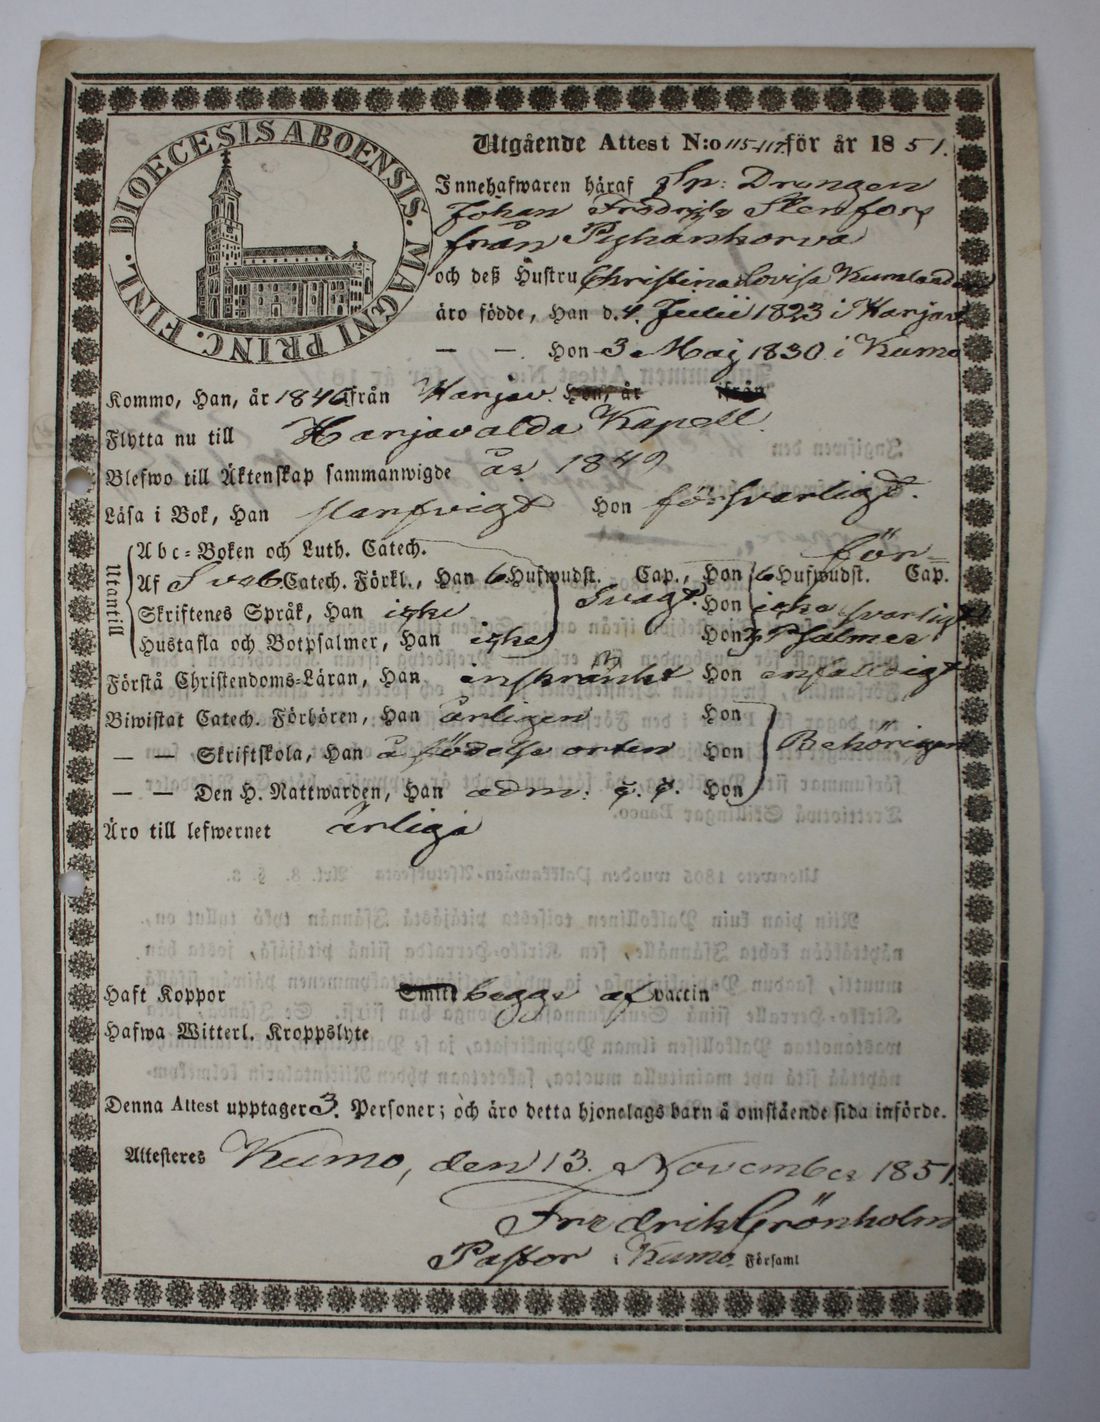 DIOECESIS ABOENSIS. MAGNI PRINC. FINL.
Utgående Attest N:o 115-117. för år 1851.
Innehafwaren häraf Sp: Drängen
Johan Fredrik Stenfors
från Pishänkorva
och deß Hustru Christina Lovisa Kumlander
äro födde, Han d. 4 Julii 1823 i Harjav.
— —. Hon 3 Maj 1830 i Kumo
Kommo, Han, år 1846 ifrån Harjav. Hon, år ifrån
Flytta nu till Harjavalda Kapell.
Blefwo till Äktenskap sammanwigde år 1849
Läsa i Bok, Han Hon försvarligt.
Utantill
Abc-Boken och Luth. Catech. för-
Af Sveb. Catech. Förkl., Han 6 Hufwudst. Cap., Hon 6 Hufwudst. Cap.
Skriftenes Språk, Han icke Svagt. Hon icke svarligt
Hustafla och Botpsalmer, Han icke Hon 3 Psalmer
Förstå Christendoms-Läran, Han inskränkt Hon enfaldigt
Biwistat Catech. Förhören, Han årligen Hon
— — Skriftskola, Han å födelse orten Hon Behörigen
— — Den H. Nattwarden, Han adm. Hon
Äro till lefwernet ärliga
Haft Koppor Smitt begge af vaccin
Hafwa Witterl. Kroppslyte
Denna Attest upptager 3. Personer; och äro detta hjonelags barn å omstående sida införde.
Attesteres Kumo, den 13. November 1851.
Fredrik Grönholm
Pastor i Kumo Församl